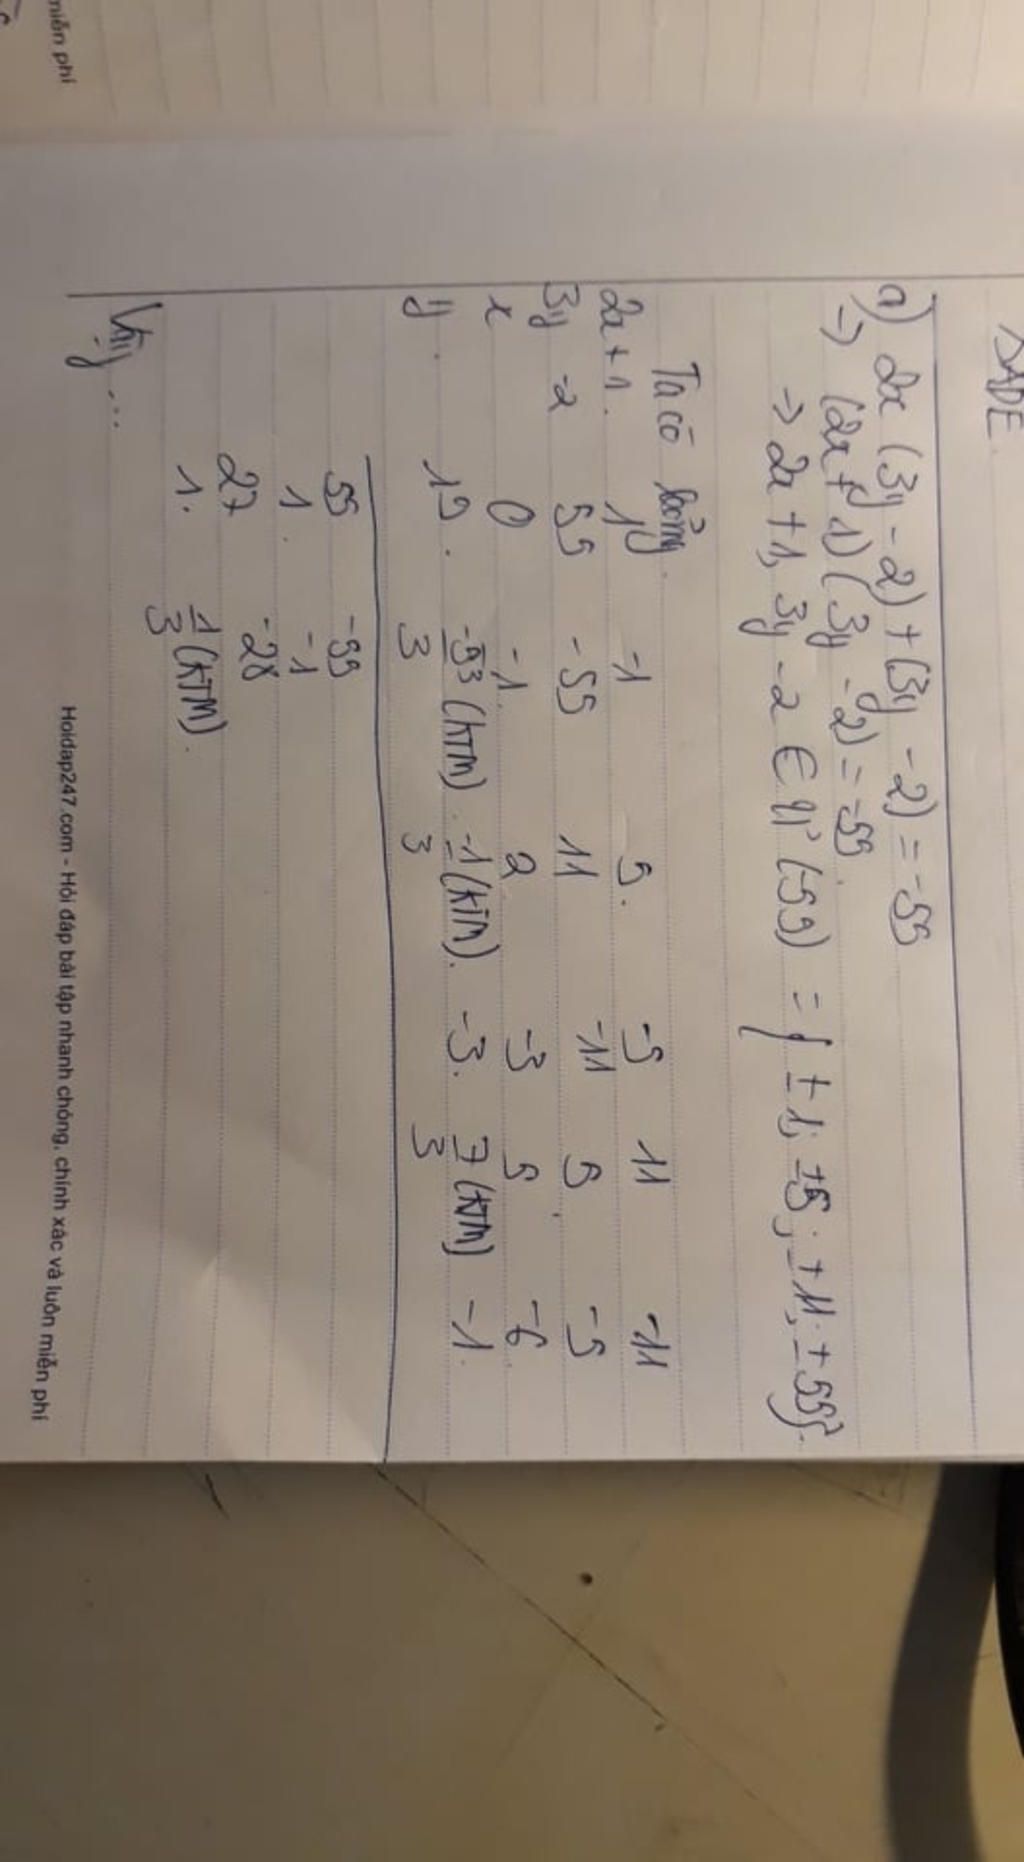 miễn phí
DADE
a) 2x (3y - 2) + (3y - 2) = -55
=> (2x + 1)(3y - 2) = -55.
=> 2x + 1, 3y - 2 ∈ Ư (-55) = { ±1; ±5; ±11; ±55}.
Ta có bảng.
2x + 1. 1 -1 5. -5 11 -11
3y -2 55 -55 11 -11 5 -5
x 0 -1. 2 -3 5 -6
y 19. -53/3 (KTM). -1/3 (KTM). -3. 7/3 (KTM) -1.
55 -55
1. -1
27 -28
1. 1/3 (KTM).
Vậy ...
Hoidap247.com - Hỏi đáp bài tập nhanh chóng, chính xác và luôn miễn phí